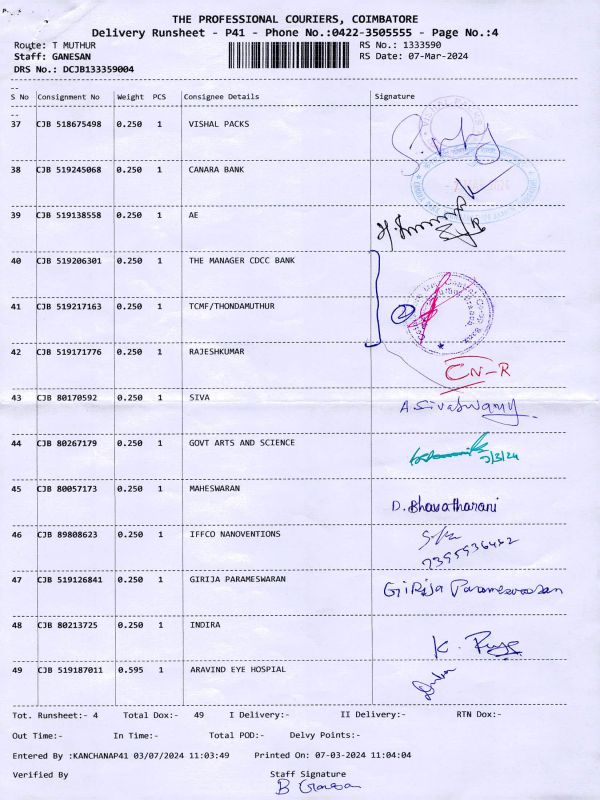 THE PROFESSIONAL COURIERS, COIMBATORE
Delivery Runsheet - P41 - Phone No.:0422-3505555 - Page No.:4
Route: T MUTHUR RS No.: 1333590
Staff: GANESAN RS Date: 07-Mar-2024
DRS No.: DCJB133359004
S No Consignment No Weight PCS Consignee Details Signature
37 CJB 518675498 0.250 1 VISHAL PACKS
38 CJB 519245068 0.250 1 CANARA BANK
39 CJB 519138558 0.250 1 AE
40 CJB 519206301 0.250 1 THE MANAGER CDCC BANK
41 CJB 519217163 0.250 1 TCMF/THONDAMUTHUR
2
42 CJB 519171776 0.250 1 RAJESHKUMAR
CN-R
43 CJB 80170592 0.250 1 SIVA
A Sivaswamy
44 CJB 80267179 0.250 1 GOVT ARTS AND SCIENCE
7/3/24
45 CJB 80057173 0.250 1 MAHESWARAN
D. Bhavatharani
46 CJB 89808623 0.250 1 IFFCO NANOVENTIONS
47 CJB 519126841 0.250 1 GIRIJA PARAMESWARAN
GiRija Parameswaran
48 CJB 80213725 0.250 1 INDIRA
49 CJB 519187011 0.595 1 ARAVIND EYE HOSPIAL
Tot. Runsheet:- 4 Total Dox:- 49 I Delivery:- II Delivery:- RTN Dox:-
Out Time:- In Time:- Total POD:- Delvy Points:-
Entered By :KANCHANAP41 03/07/2024 11:03:49 Printed On: 07-03-2024 11:04:04
Verified By Staff Signature
B Ganesan